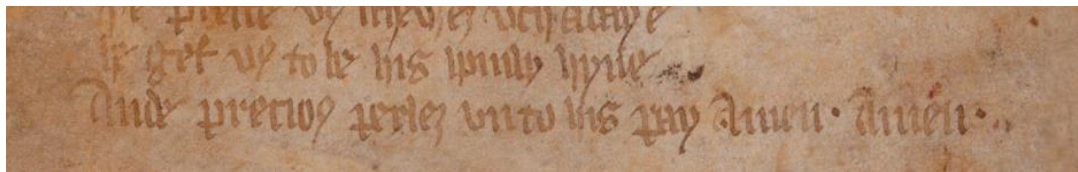 þe preste vꝰ schewez vch a daye
he gef vꝰ to be his homly hyne
Ande precioꝰ perlez vnto his pay Amen· Amen·